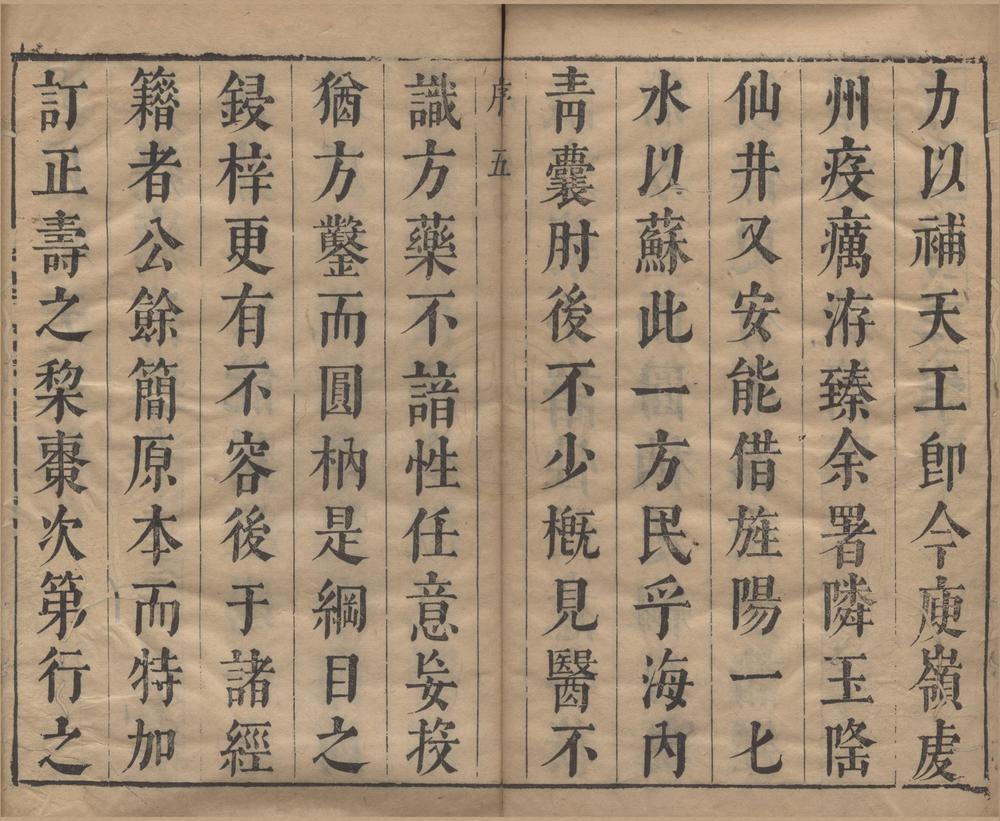 力以補天工即今庾嶺虔
州疫癘洊臻余署隣玉隆
仙井又安能借旌陽一七
水以蘇此一方民乎海內
青囊肘後不少概見醫不
序 五
識方藥不諳性任意妄投
猶方鑿而圓枘是綱目之
鋟梓更有不容後于諸經
籍者公餘簡原本而特加
訂正壽之梨棗次第行之